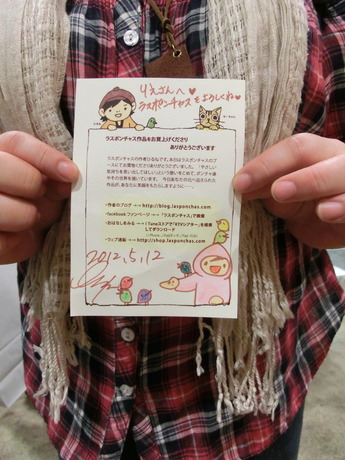 りえさんへ♥
ラスポンチャスをよろしくね♥
ラスポンチャス作品をお買上げくださり
ありがとうございます
ラスポンチャスの作者ひるねです。本日はラスポンチャスのブー
スにてお買物くださりありがとうございました。「やさしい
気持ちを思い出してほしい」という願いをこめて、ポンチャ達
やその世界を描いています。
作品が、あなたに笑顔をもたらしますように…。
・作者のブログ →→ http://blog.lasponchas.com
・facebook ファンページ →→「ラスポンチャス」で検索
・おはなしをみる →→ iTunesストアで「KTVシアター」を検索
してダウンロード
・ウェブ通販 →→ http://shop.lasponchas.com
2012.5.12